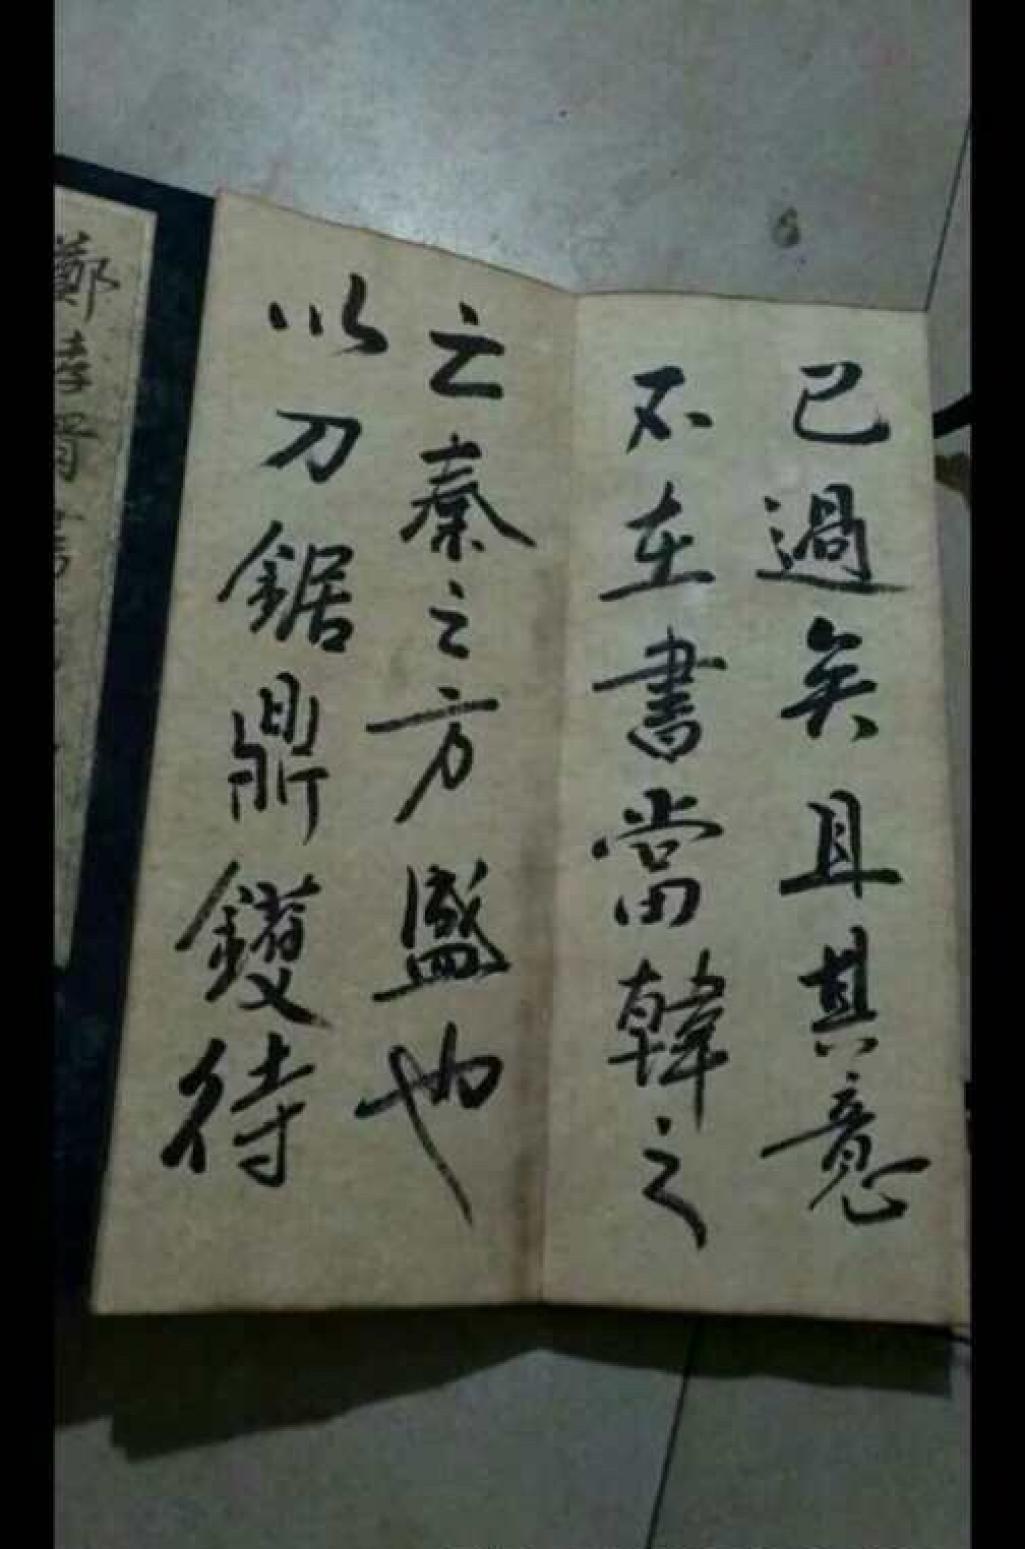 已過矣且其意
不在書當韓之
亡秦之方盛也
以刀鋸鼎鑊待
鄭孝胥書